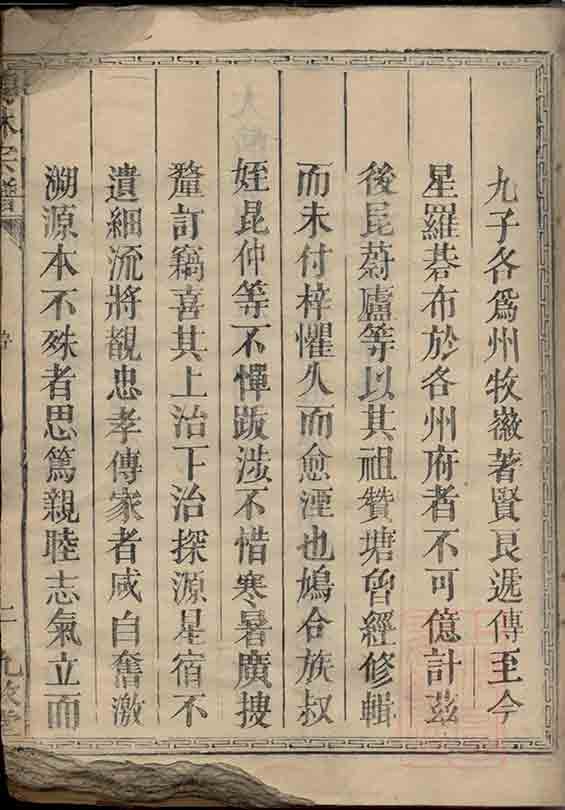 九子各爲州牧徽著賢良遞傳至今
星羅碁布於各州府者不可億計茲
後昆蔚廬等以其祖贊塘曾經修輯
而未付梓懼久而愈湮也鳩合族叔
姪昆仲等不憚跋涉不惜寒暑廣搜
釐訂竊喜其上治下治探源星宿不
遺細流將覩忠孝傳家者咸自奮激
溯源本不殊者思篤親睦志氣立而
林宗譜
二
九牧堂